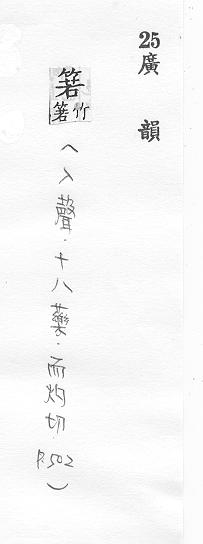 25廣韻
箬竹箬
(入聲．十八藥．而灼切．P.502)